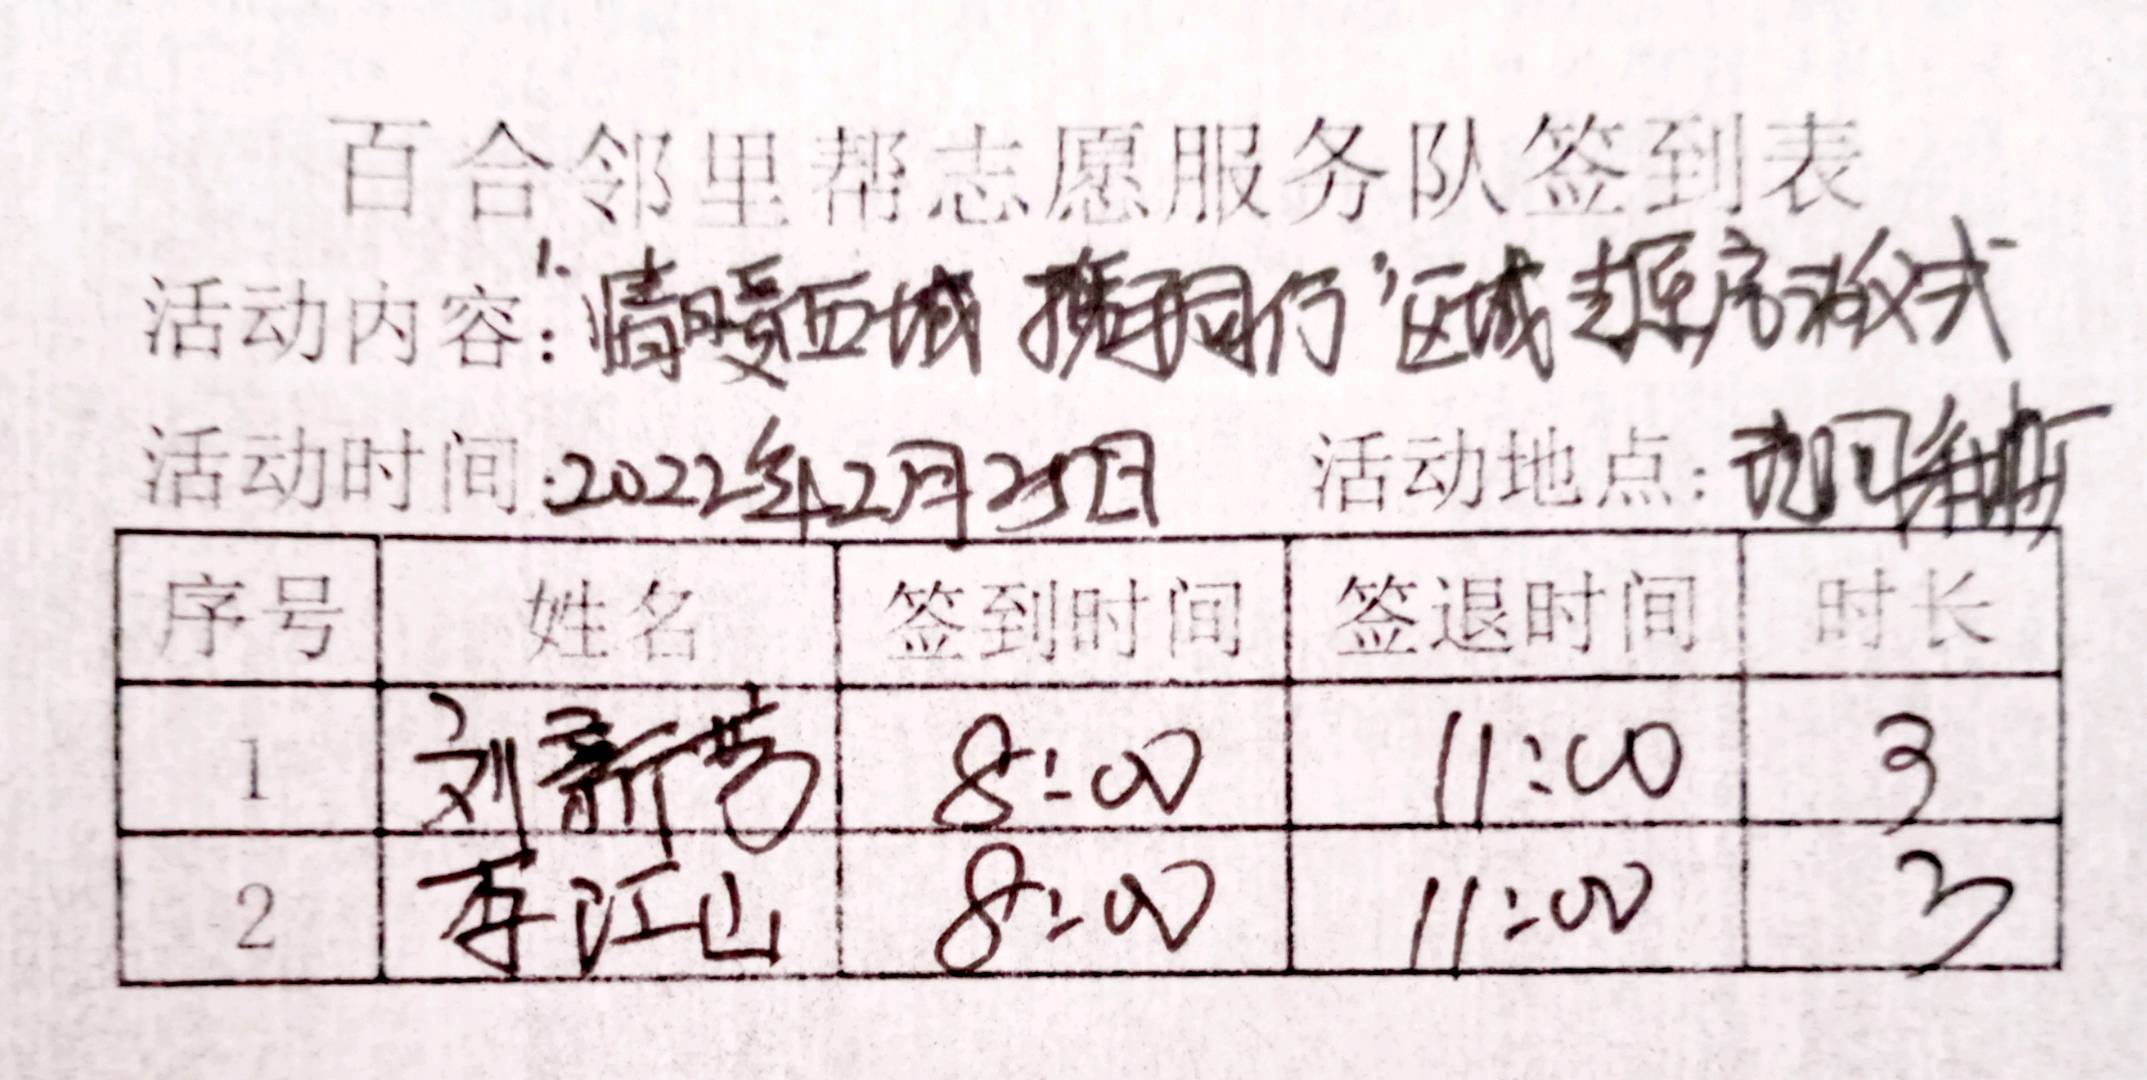 百合邻里帮志愿服务队签到表
活动内容:“情暖西城 携手同行”区域 仪式
活动时间:2022年2月25日 活动地点:
序号 姓名 签到时间 签退时间 时长
1 刘新芳 8:00 11:00 3
2 江山 8:00 11:00 3